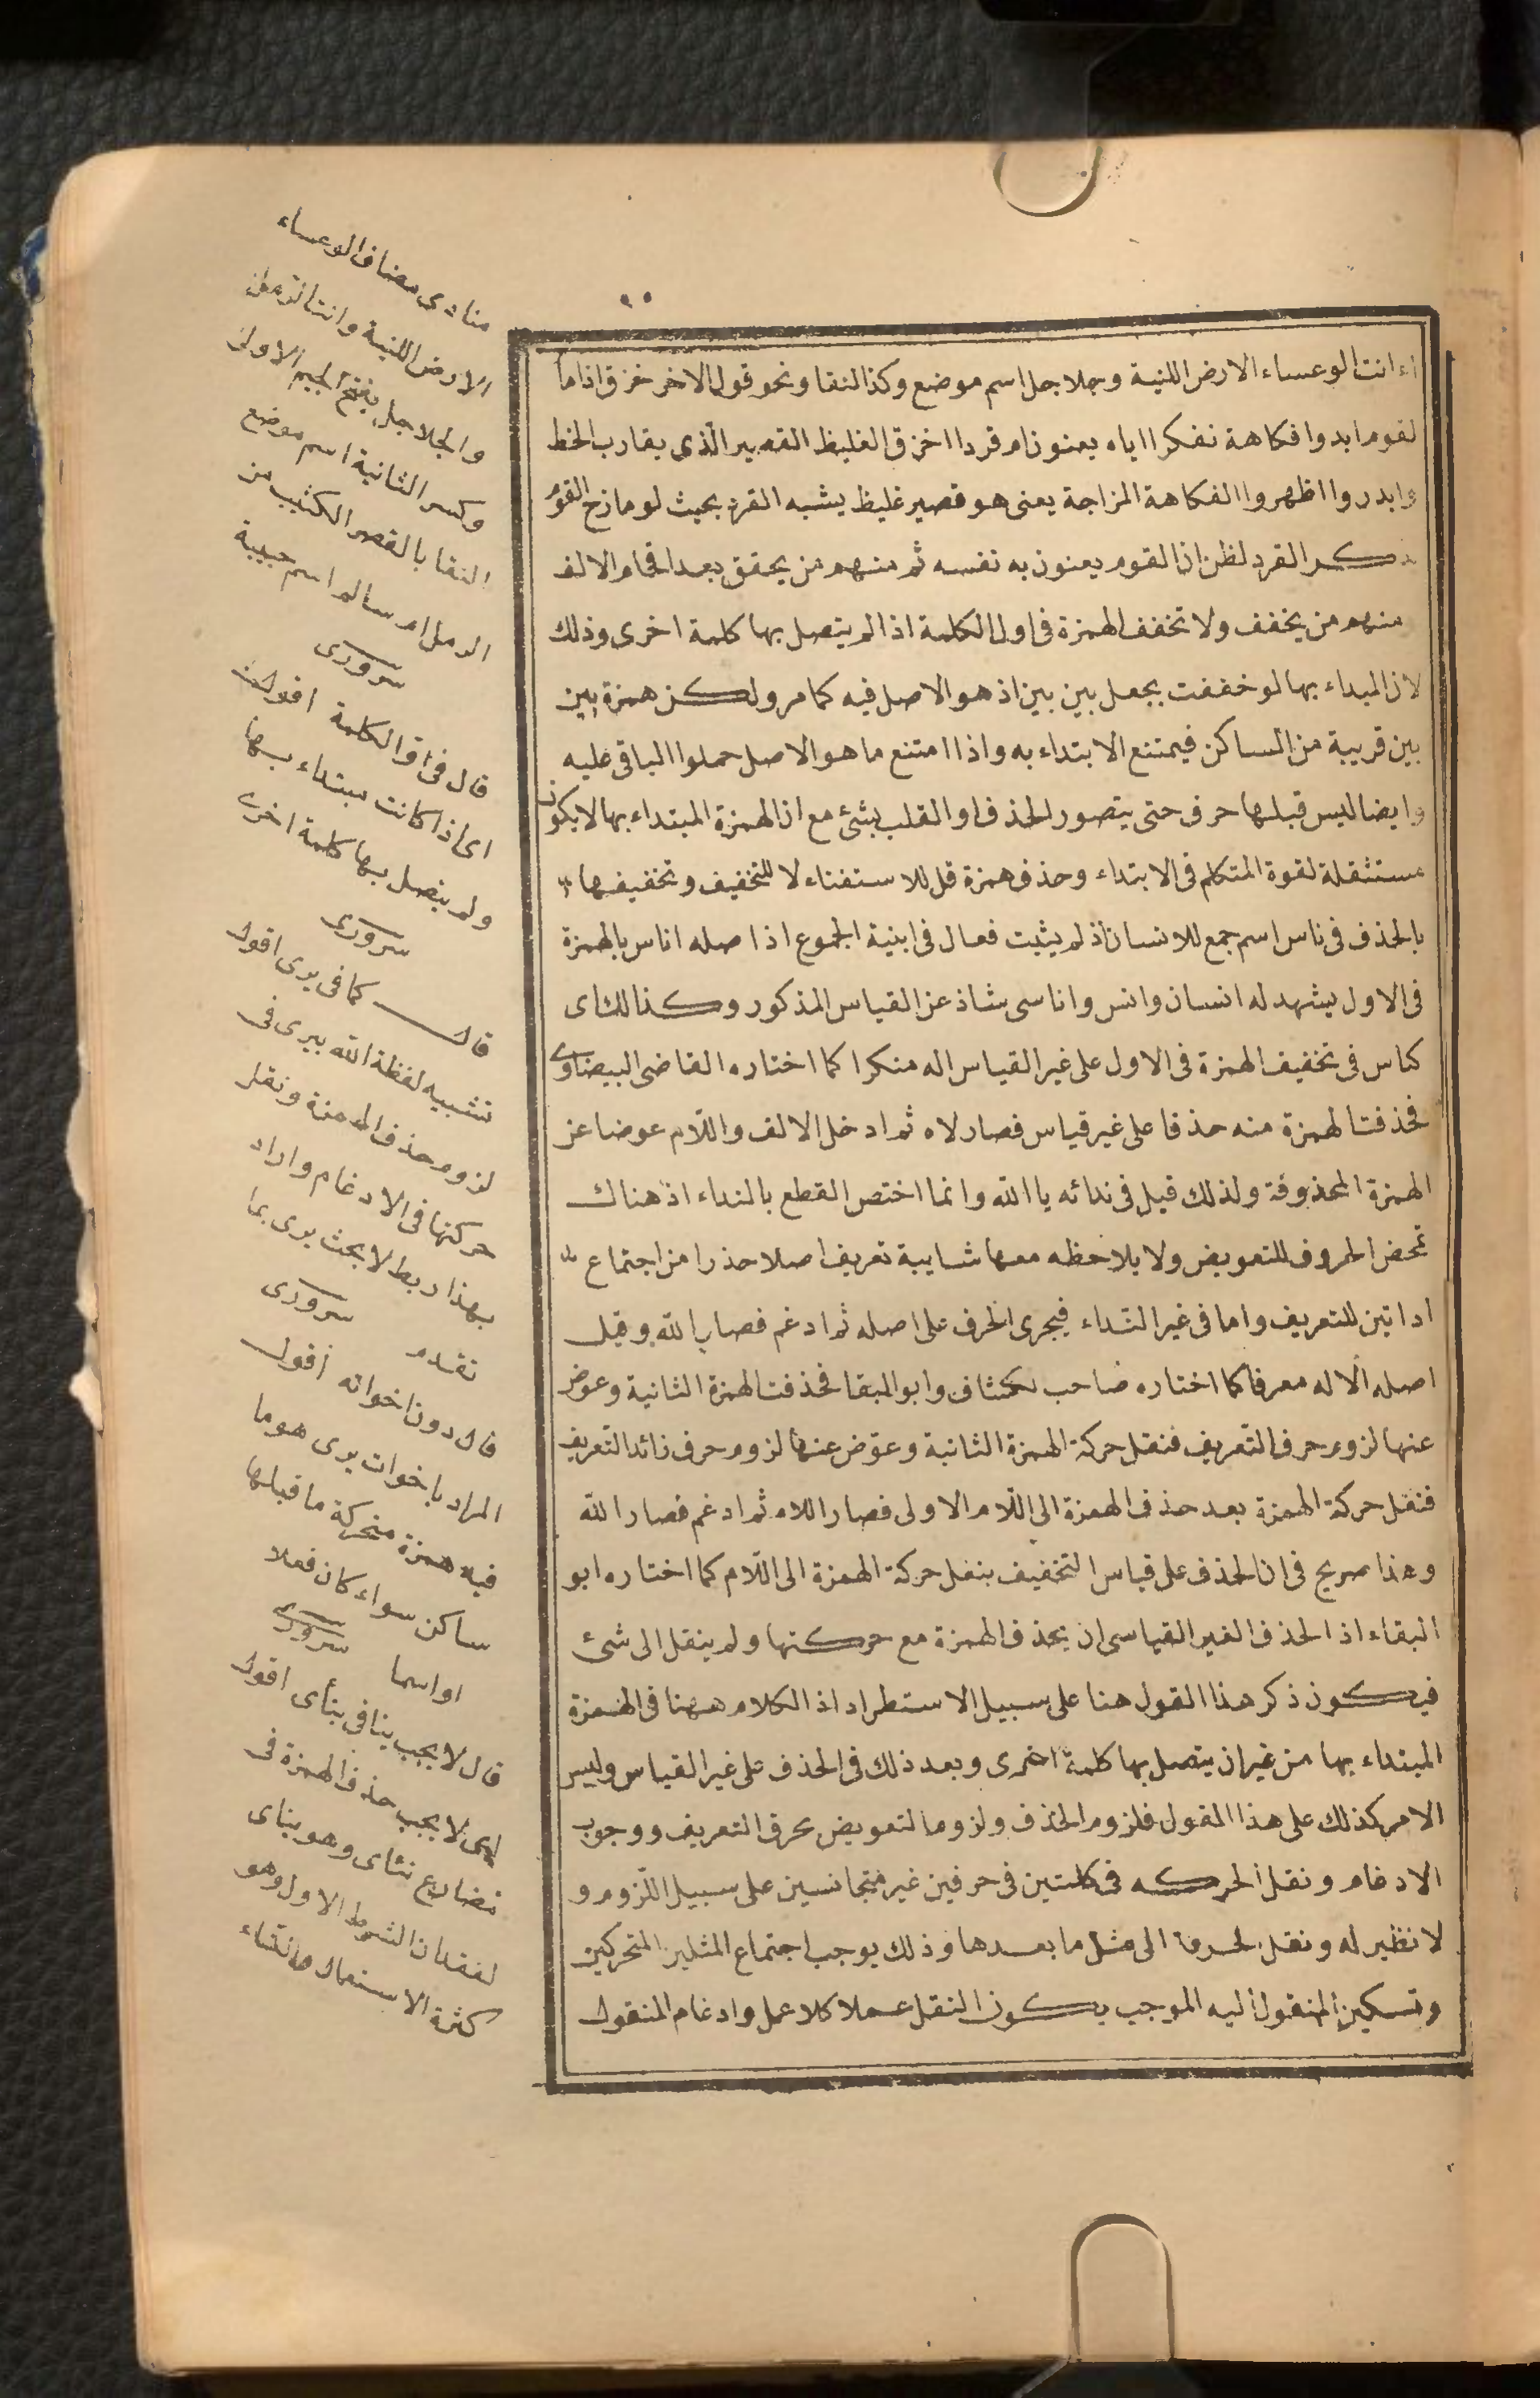 ٩٥
اء انت الوعساء الارض اللنية وجلاجل اسم موضع وكذا النقا ونحو قول الاخر خزق اذا ما
لقوم ابدوا فكاهة نفكرا اياه يعنون ام قردا اخزق الغليظ القصير الّذى يقارب الخط
وابدروا اظهروا الفكاهة المزاجة يعنى هو قصير غليظ يشبه القرد بحيث لو مازح القوم
ذكر القرد لظن ان القوم يعنون به نفسه ثم منهم من يحقق بعد اقحام الالف
منهم من يخفف ولا تخفف الهمزة فى اول الكلمة اذا لم يتصل بها كلمة اخرى وذلك
لان المبداء بها لو خففت بجعل بين بين اذ هو الاصل فيه كما مر ولكن همزة بين
بين قريبة من الساكن فيمتنع الابتداء به واذا امتنع ما هو الاصل حملوا الباقى عليه
وايضا ليس قبلها حرف حتى يتصور الحذف او القلب بشئ مع ان الهمزة المبتداء بها لا يكون
مستثقلة لقوة المتكلم فى الابتداء وحذف همزة قل للاستغناء لا للتخفيف وتخفيفها
بالحذف فى ناس اسم جمع للانسان اذ لم يثبت فعال فى ابنية الجموع اذ اصله اناس بالهمزة
فى الاول يشهد له انسان وانس واناسى شاذ عن القياس المذكور وكذالك اى
كناس فى تخفيف الهمزة فى الاول على غير القياس اله منكرا كما اختاره القاضى البيضاوى
فحذفت الهمزة منه حذفا على غير قياس فصار لاه ثم ادخل الالف واللّام عوضا عن
الهمزة المحذوفة ولذلك قيل فى ندائه يا الله وانما اختص القطع بالنداء اذ هناك
تمحض الحروف للتعويض ولا يلاحظه معها شايبة تعريف اصلا حذرا من اجتماع
اداتين للتعريف واما فى غير النداء فيجرى الحرف على اصله ثم ادغم فصار الله وقيل
اصله الاله معرفا كما اختاره صاحب الكشاف وابو البقا فحذفت الهمزة الثانية وعوض
عنها لزوم حرف التعريف فنقل حركة الهمزة الثانية وعوّض عنها لزوم حرف زائد التعريف
فنقل حركة الهمزة بعد حذف الهمزة الى اللّام الاولى فصار اللاه ثم ادغم فصار الله
وهذا صريح فى ان الحذف على قياس التخفيف بنقل حركة الهمزة الى اللّام كما اختاره ابو
البقاء اذ الحذف الغير القياسى ان يحذف الهمزة مع حركتها ولم ينقل الى شئ
فيكون ذكر هذا القول هنا على سبيل الاستطراد اذ الكلام ههنا فى الهمزة
المبتداء بها من غير ان يتصل بها كلمة اخرى وبعد ذلك فى الحذف على غير القياس وليس
الامر كذلك على هذا القول فلزوم الحذف ولزوم التعويض بحرف التعريف ووجوب
الادغام ونقل الحركه فى كلمتين فى حرفين غير متجانسين على سبيل اللّزوم و
لا نظير له ونقل الحرف الى مثل ما بعدها وذلك يوجب اجتماع المثلين المتحركين
وتسكين المنقول اليه الموجب يكون النقل عملا كلا عمل وادغام المنقول
منادى مضاف الوعساء
الارض اللنية وانتا
والجلاجل بفتح الجيم الاولى
وكسر الثانية اسم موضع
النقا بالقصر الكثيب من
الرمل ام سالم اسم حبيبة
سرورى
قال فى اوّل الكلمة اقول
اى اذا كانت مبتداء بها
ولم يتصل بها كلمة اخرى
سرورى
قال كما فى يرى اقول
تشبيه لفظة الله بيرى فى
لزوم حذف الهمزة ونقل
حركتها فى الادغام واراد
بهذا ربط الابحث يرى بما
تقدم سرورى
قال دون اخواته اقول
المراد باخوات يرى هو ما
فيه همزة متحركة ما قبلها
ساكن سواء كان فعلا
او اسما سرورى
قال لا يجب ينافى ينأى اقول
اى لا يجب حذف الهمزة فى
مضارع نئاى وهو يناى
لفقدان الشرط الاول وهو
كثرة الاستعمال